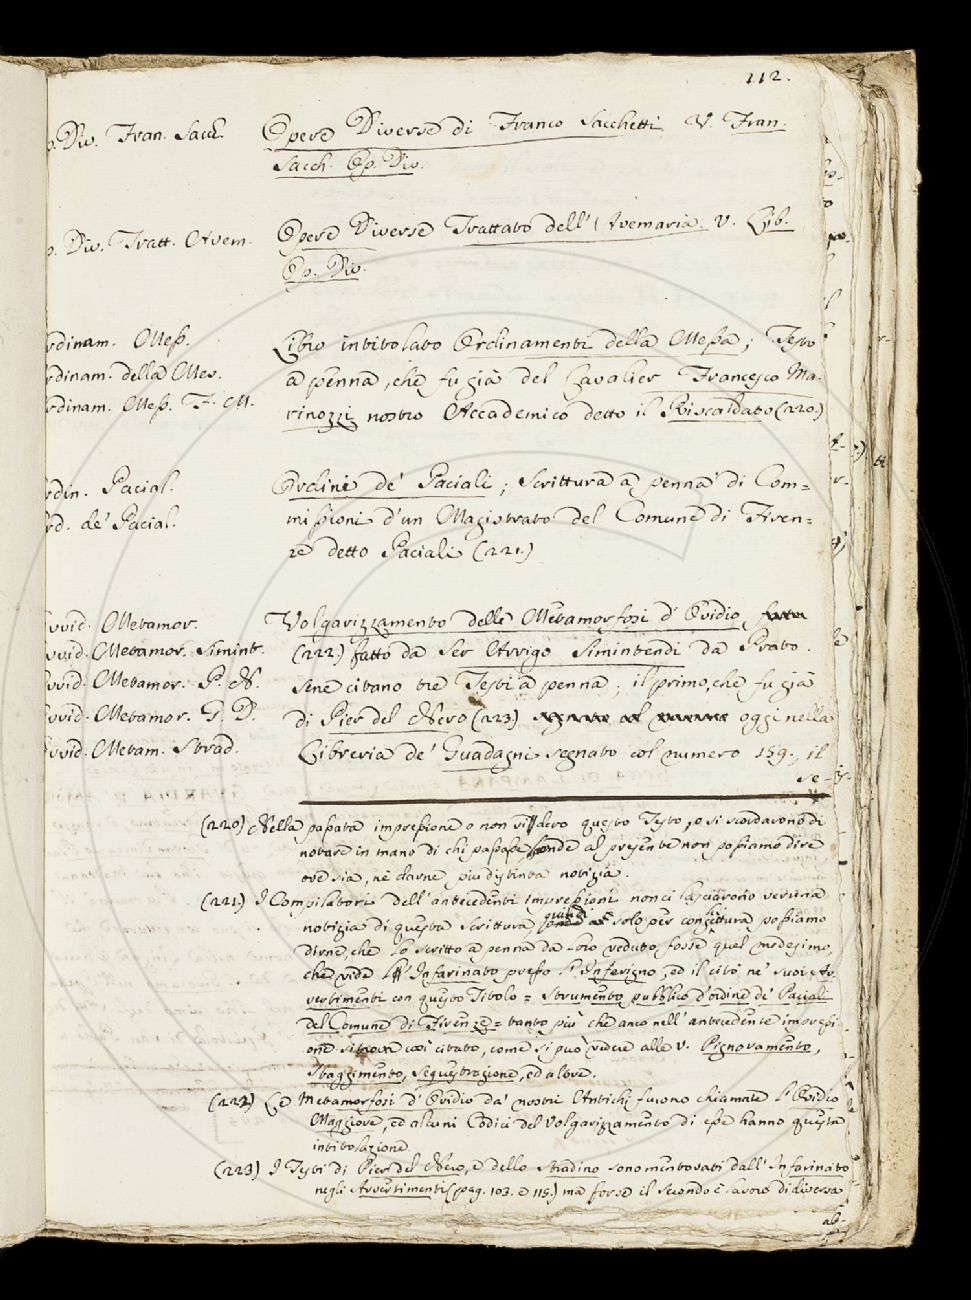 112.
p. Div. Fran. Sacch. Opere Diverse di Franco Sacchetti V. Fran.
Sacch. Op. Div.
p. Div. Tratt. Avem. Opere Diverse Trattato dell'Avemaria. V. Lib.
Op. Div.
rdinam. Mess. Libro intitolato Ordinamenti della Messa; Testo
rdinam. della Mes. a penna, che fu già del Cavalier Francesco Ma-
rdinam. Mess. F. M. rinozzi nostro Accademico detto il Riscaldato (220.)
rdin. Pacial. Ordine de' Paciali; Scrittura a penna di Com=
rd. de' Pacial. missioni d'un Magistrato del Comune di Firen=
ze detto Paciali (221.)
vvid. Metamor. Volgarizzamento delle Metamorfosi d'Ovidio, fatto
vvid. Metamor. Simint. (222.) fatto da Ser Arrigo Simintendi da Prato.
vvid. Metamor. P. N. Sene citano tre Testi a penna; il primo, che fu già
vvid. Metamor. G. D. di Pier del Nero (223) oggi nella
vvid. Metam. Strad. Libreria de' Guadagni segnato col numero 159., il
se-
(220) Nella passata impressione o non videro questo Testo, o si scordarono di
notare in mano di chi passasse, onde al presente non possiamo dire
ove sia, nè darne più distinta notizia.
(221.) I Compilatori dell'antecedenti impressioni non ci lasciarono veruna
notizia di questa scrittura, quindi è solo per conghiettura possiamo
dirne, che lo scritto a penna da loro veduto, fosse quel medesimo,
che vide l'Infarinato presso l'Inferigno, ed il citò ne' suoi Av-
vertimenti con questo Titolo = Strumento pubblico d'ordine de' Paciali
del Comune di Firenze = tanto più che anco nell'antecedente impressi-
one si trova così citato, come si può vedere alle V. Pignoramento,
Staggimento, Sequestrazione, ed altre.
(222) Le Metamorfosi d'Ovidio da' nostri Antichi furono chiamate l'Ovidio
Maggiore, ed alcuni Codici del Volgarizzamento di esse hanno questa
intitolazione
(223) I Testi di Pier del Nero, e dello Stradino sono mentovati dall'Infarinato
negli Avvertimenti (pag. 103. e 115.) ma forse il secondo è lavoro di diversa